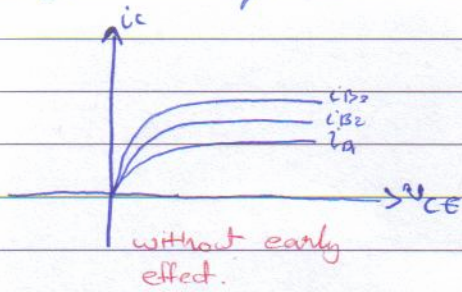 ic
iB3
iB2
iB1
VCE
without early
effect.